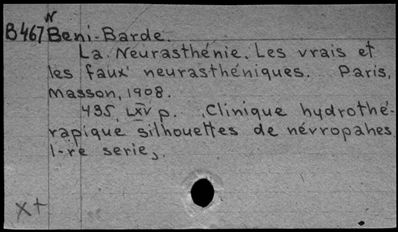 N
B467 Beni-Barde.
La Neurasthénie. Les vrais et
les faux neurasthéniques. Paris,
Masson, 1908.
495, LXIV p. Clinique hydrothé-
rapique silhouettes de névropahes
1-re serie,
X+